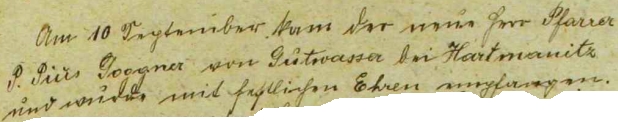 Am 10 September kam der neue Herr Pfarrer
P. Pius Goggner von Gutwasser bei Hartmanitz
und wurde mit festlichen Ehren empfangen.